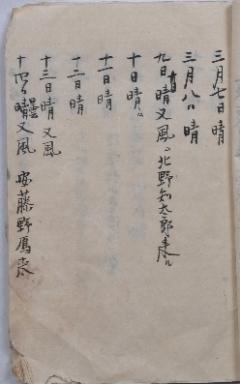 三月七日 晴
三月八日 晴
九日 晴 又風。北野知太郎来ル
十日 晴。
十一日 晴
十二日 晴
十三日 晴 又風
十四日 晴曇 又風 安藤野鴈来